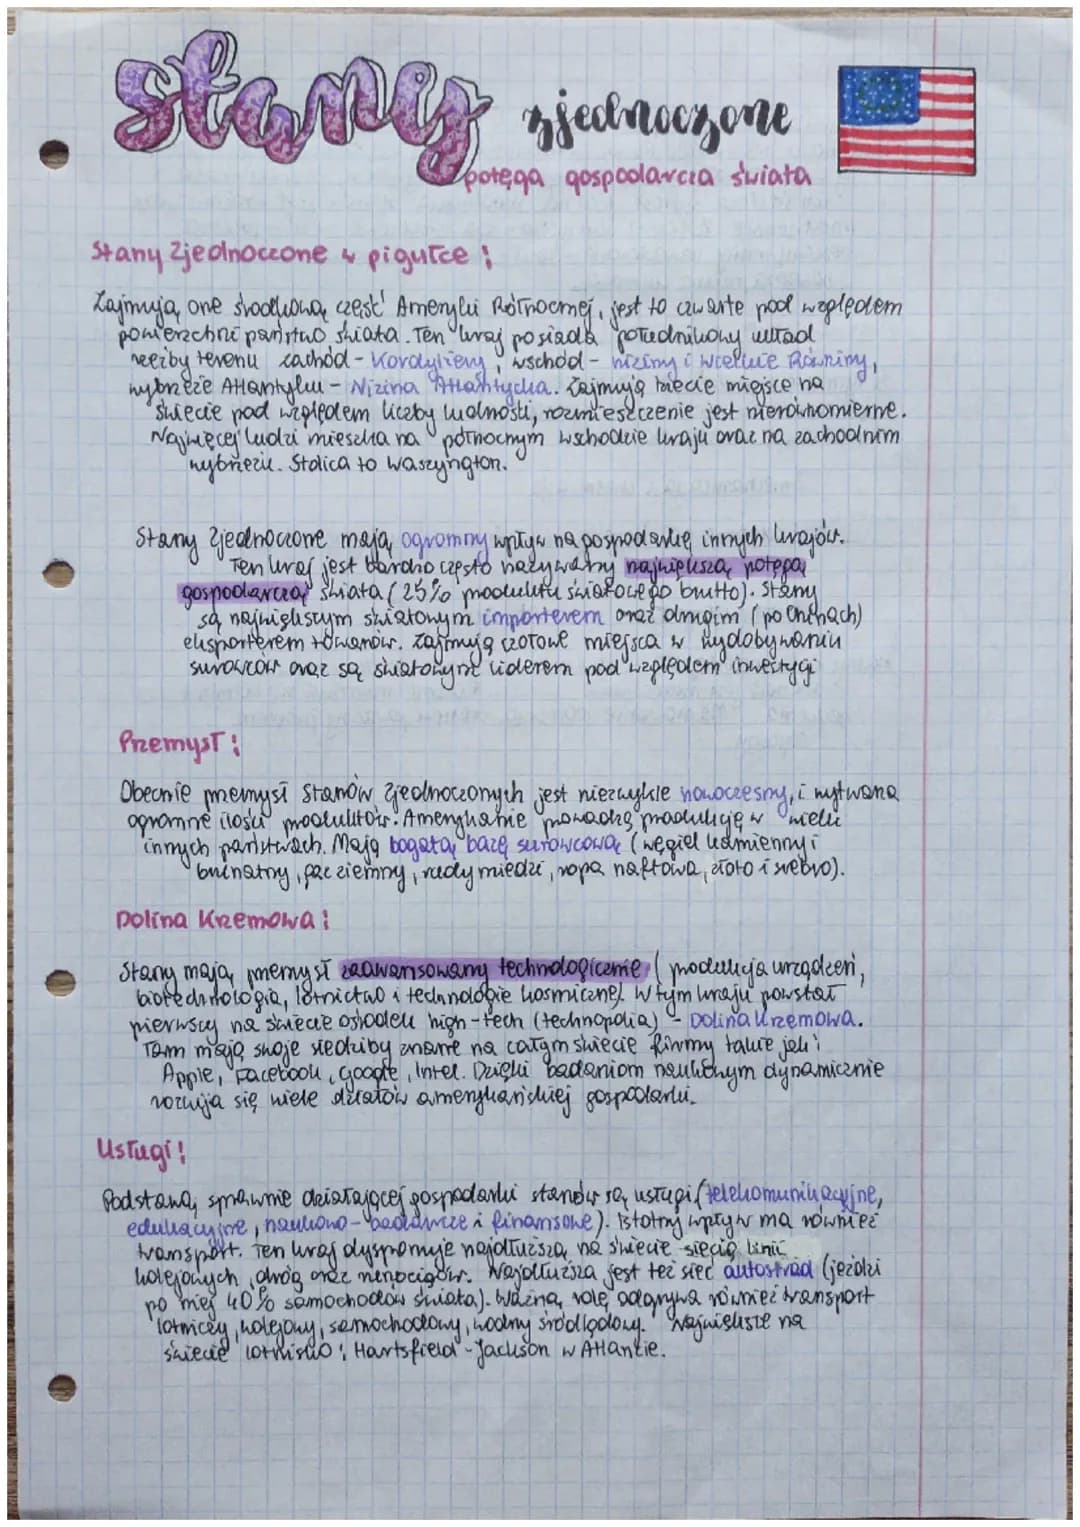 Stany zjednoczone
potęga gospodarcza świata
Stany Zjednoczone w pigułce :
Zajmują one środkową część Ameryki Północnej, jest to czwarte pod względem
powierzchni państwo świata. Ten kraj posiada południkowy układ
rzeźby terenu zachód - Kordyliery, wschód - niziny i Wielkie Równiny,
wybrzeże Atlantyku - Nizina Atlantycka. Zajmują trzecie miejsce na
świecie pod względem liczby ludności, rozmieszczenie jest nierównomierne.
Najwięcej ludzi mieszka na północnym wschodzie kraju oraz na zachodnim
wybrzeżu. Stolica to Waszyngton.
Stany Zjednoczone mają ogromny wpływ na gospodarkę innych krajów.
Ten kraj jest bardzo często nazywany największą potęgą
gospodarczą świata (25% produktu światowego brutto). Stany
są największym światowym importerem oraz drugim (po Chinach)
eksporterem towarów. Zajmują czołowe miejsca w wydobywaniu
surowców oraz są światowym liderem pod względem inwestycji
Przemysł :
Obecnie przemysł Stanów Zjednoczonych jest niezwykle nowoczesny, i wytwarza
ogromne ilości produktów. Amerykanie prowadzą produkcję w wielu
innych państwach. Mają bogatą bazę surowcową (węgiel kamienny i
brunatny, gaz ziemny, rudy miedzi, ropa naftowa, złoto i srebro).
Dolina Krzemowa :
Stany mają przemysł zaawansowany technologicznie (produkcja urządzeń,
biotechnologia, lotnictwo i technologie kosmiczne). W tym kraju powstał
pierwszy na świecie ośrodek high-tech (technopolia) - Dolina Krzemowa.
Tam mają swoje siedziby znane na całym świecie firmy takie jak :
Apple, Facebook, Google, Intel. Dzięki badaniom naukowym dynamicznie
rozwija się wiele działów amerykańskiej gospodarki.
Usługi :
Podstawą sprawnie działającej gospodarki stanów są usługi (telekomunikacyjne,
edukacyjne, naukowo-badawcze i finansowe). Istotny wpływ ma również
transport. Ten kraj dysponuje najdłuższą na świecie siecią linii
kolejowych, dróg oraz rurociągów. Najdłuższa jest też sieć autostrad (jeździ
po niej 40% samochodów świata). Ważną rolę odgrywa również transport
lotniczy, kolejowy, samochodowy, wodny śródlądowy. Największe na
świecie lotnisko : Hartsfield-Jackson w Atlancie.